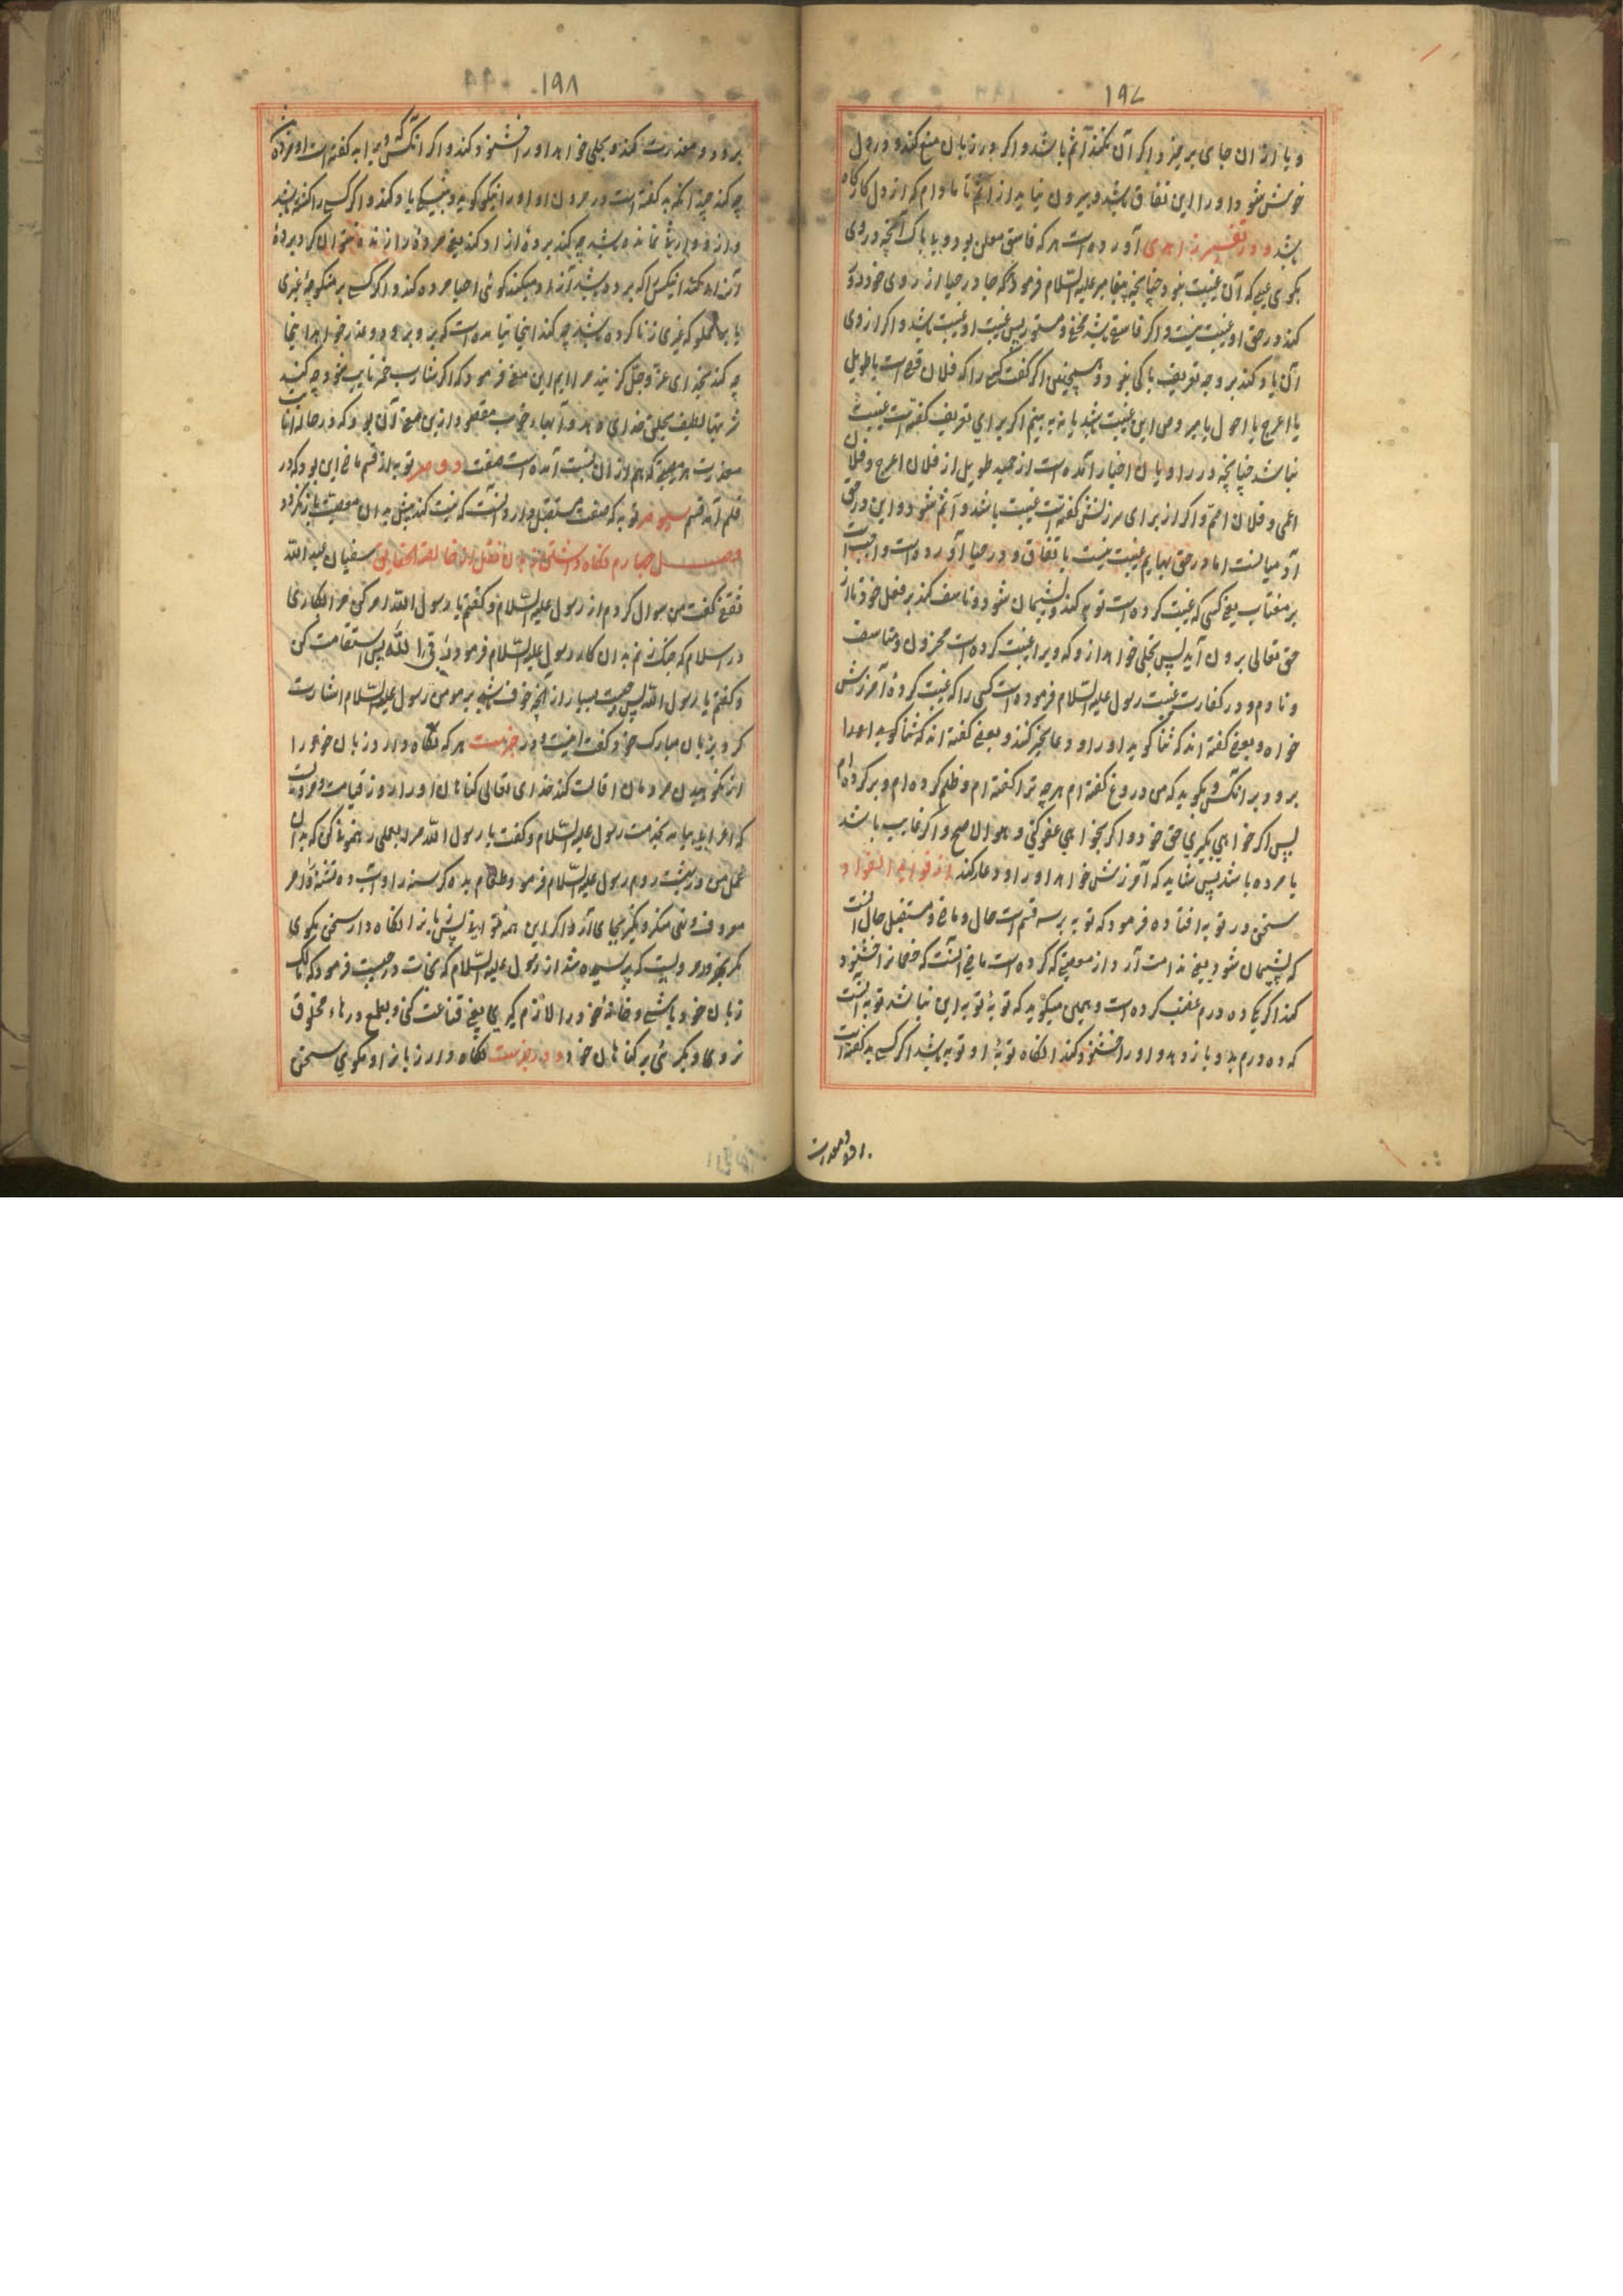 ۱۹۷
و یا از ان جای برخیزد اکر آن نکند آثم باشد و اکر بزبان منع کند و در دل
خوش شود او را این نفاق باشد و بیرون نیاید از اثم تا مادام که از دل کاره
باشد و در تفسیر زاهدی آورده است هر که فاسق معلن بود و بیباک آنچه در وی
بکوی عیبی که آن غیبت نبود چنانچه پیغامبر علیه السلام فرمود هر که چادر حیا از روی خود دور
کند در حق او غیبت نیست و اکر فاسق باشد مخفی و مستور پس غیبت او غیبت باشد و اکر از وی
آن یاد کند بر وجه تعریف باکی نبود و همچنین اکر کفت کسی را که فلان قصیر است یا طویل
یا اعرج یا احول یا مبروص این غیبت باشد یا نه به بینیم اکر برای تعریف کفته است غیبت
نباشد چنانچه در راویان اخبار آمده است از حمید طویل از فلان اعرج و فلان
اعمی و فلان اصم و اکر از برای سرزنش کفته است غیبت باشد و آثم شود و این در حق
آدمیانست اما در حق بهایم غیبت نیست باتفاق و در احیا آورده است واجب است
بر مغتاب یعنی کسی که غیبت کرده است توبه کند و پشیمان شود و تاسف کند بر فعل خود تا از
حق تعالی برون آید پس بحلی خواهد ازو که ویرا غیبت کرده است محزون و متاسف
و نادم و در کفارت غیبت رسول علیه السلام فرموده است کسی را که غیبت کردهٔ آمرزش
خواه و بعضی کفته اند که ثنا کوید او را و دعا بخیر کند و بعضی کفته اند که ثنا کوید او را
برود بر انکس و بکوید که من دروغ کفته ام هرچه ترا کفته ام و ظلم کرده ام و بد کرده ام
پس اکر خواهی بکیری حق خود و اکر بخواهی عفو کنی و هو الاصح و اکر غایب باشد
یا مرده باشد پس شاید که آمرزش خواهد او را و دعا کند از فواید الفواد
سخن در توبه افتاده فرمود که توبه بر سه قسم است حال و ماضی و مستقبل حال آنست
که پشیمان شود یعنی ندامت آرد از معصیتی که کرده است ماضی آنست که خصمانرا خشنود
کند اکر یکی ده درم غصب کرده است و همین میکوید که توبه توبه این نباشد توبه آنست
که ده درم بدو باز دهد و او را خشنود کند انکاه توبهٔ او توبه باشد اکر کسی بد کفته است
برود و معذرت
۱۹۸
برود و معذرت کند و بحلی خواهد او را خشنود کند و اکر انکس که ویرا بد کفته است او مرده
چه کند چندانکه بد کفته است در مردن او او را نیکو کوید و بنیکی یاد کند و اکر کسی را کشته باشد
و از و وارثی نمانده باشد چه کند بردهٔ ازاد کند یعنی مردهٔ را زنده نتوان کرد بردهٔ
آزاد کند انیکس که برده باشد آزاد میکند کوئی احیا مرده کند و اکر کسی بر منکوحهٔ غیری
یا بر مملوکه غیری زنا کرده باشد چه کند اینجا نیامده است که برود و عذر خواهد اینجا
چه کند بخدای عز و جل کریزد ملایم این معنی فرمود که اکر شارب خمر تایب شود چه کند
شربتها لطیف بخلق خدای دهد و آبهاء خوب مقصود ازین معنی آن بود که در حالت انابت
معذرت هر معصیتی که هم از ان نسبت آمده است صفت دویم توبه از قسم ماضی این بود که در
قلم آمد قسم سیوم توبه که صفت مستقبل دارد آنست که نیت کند بیش به ان معصیت باز نکردد
فصل چهارم نکاه داشتن زبان نقل از خالصة الحقایق سفیان عبد الله
ثقفی کفت من سوال کردم از رسول علیه السلام و کفتم یا رسول الله امر کن مرا بکاری
در اسلام که چنک زنم به ان کار رسول علیه السلام فرمود پس استقامت کن
و کفتم یا رسول الله پس چیست بسیار از آنچه خوف باشد بر مومن رسول علیه السلام اشارت
کرد بزبان مبارک خود و کفت اینست و در خبرست هر که نکاه دارد زبان خود را
از نکوهیدن مردمان اقالت کند خدای تعالی کناهان او را روز قیامت و مرویست
که اعرابی بیامد بخدمت رسول علیه السلام و کفت یا رسول الله مرا بعملی رهنمونی کن که به ان
عمل من در بهشت روم رسول علیه السلام فرمود طعام بده کرسنه را و آب ده تشنه را و امر
معروف و نهی منکر بجای آر و اکر این همه نتوانی پس زبانرا نکاه دار سخن مکوی
مکر بخیر و مرویست که پرسیده شد از رسول علیه السلام که نجات در چیست فرمود که مالک
زبان خود باشی و خانهٔ خود را لازم کیری یعنی قناعت کنی و بطمع در هاء مخلوق
نروی و بکرئی بر کناهان خود و در خبرست نکاه دار زبانرا و مکوی سخن